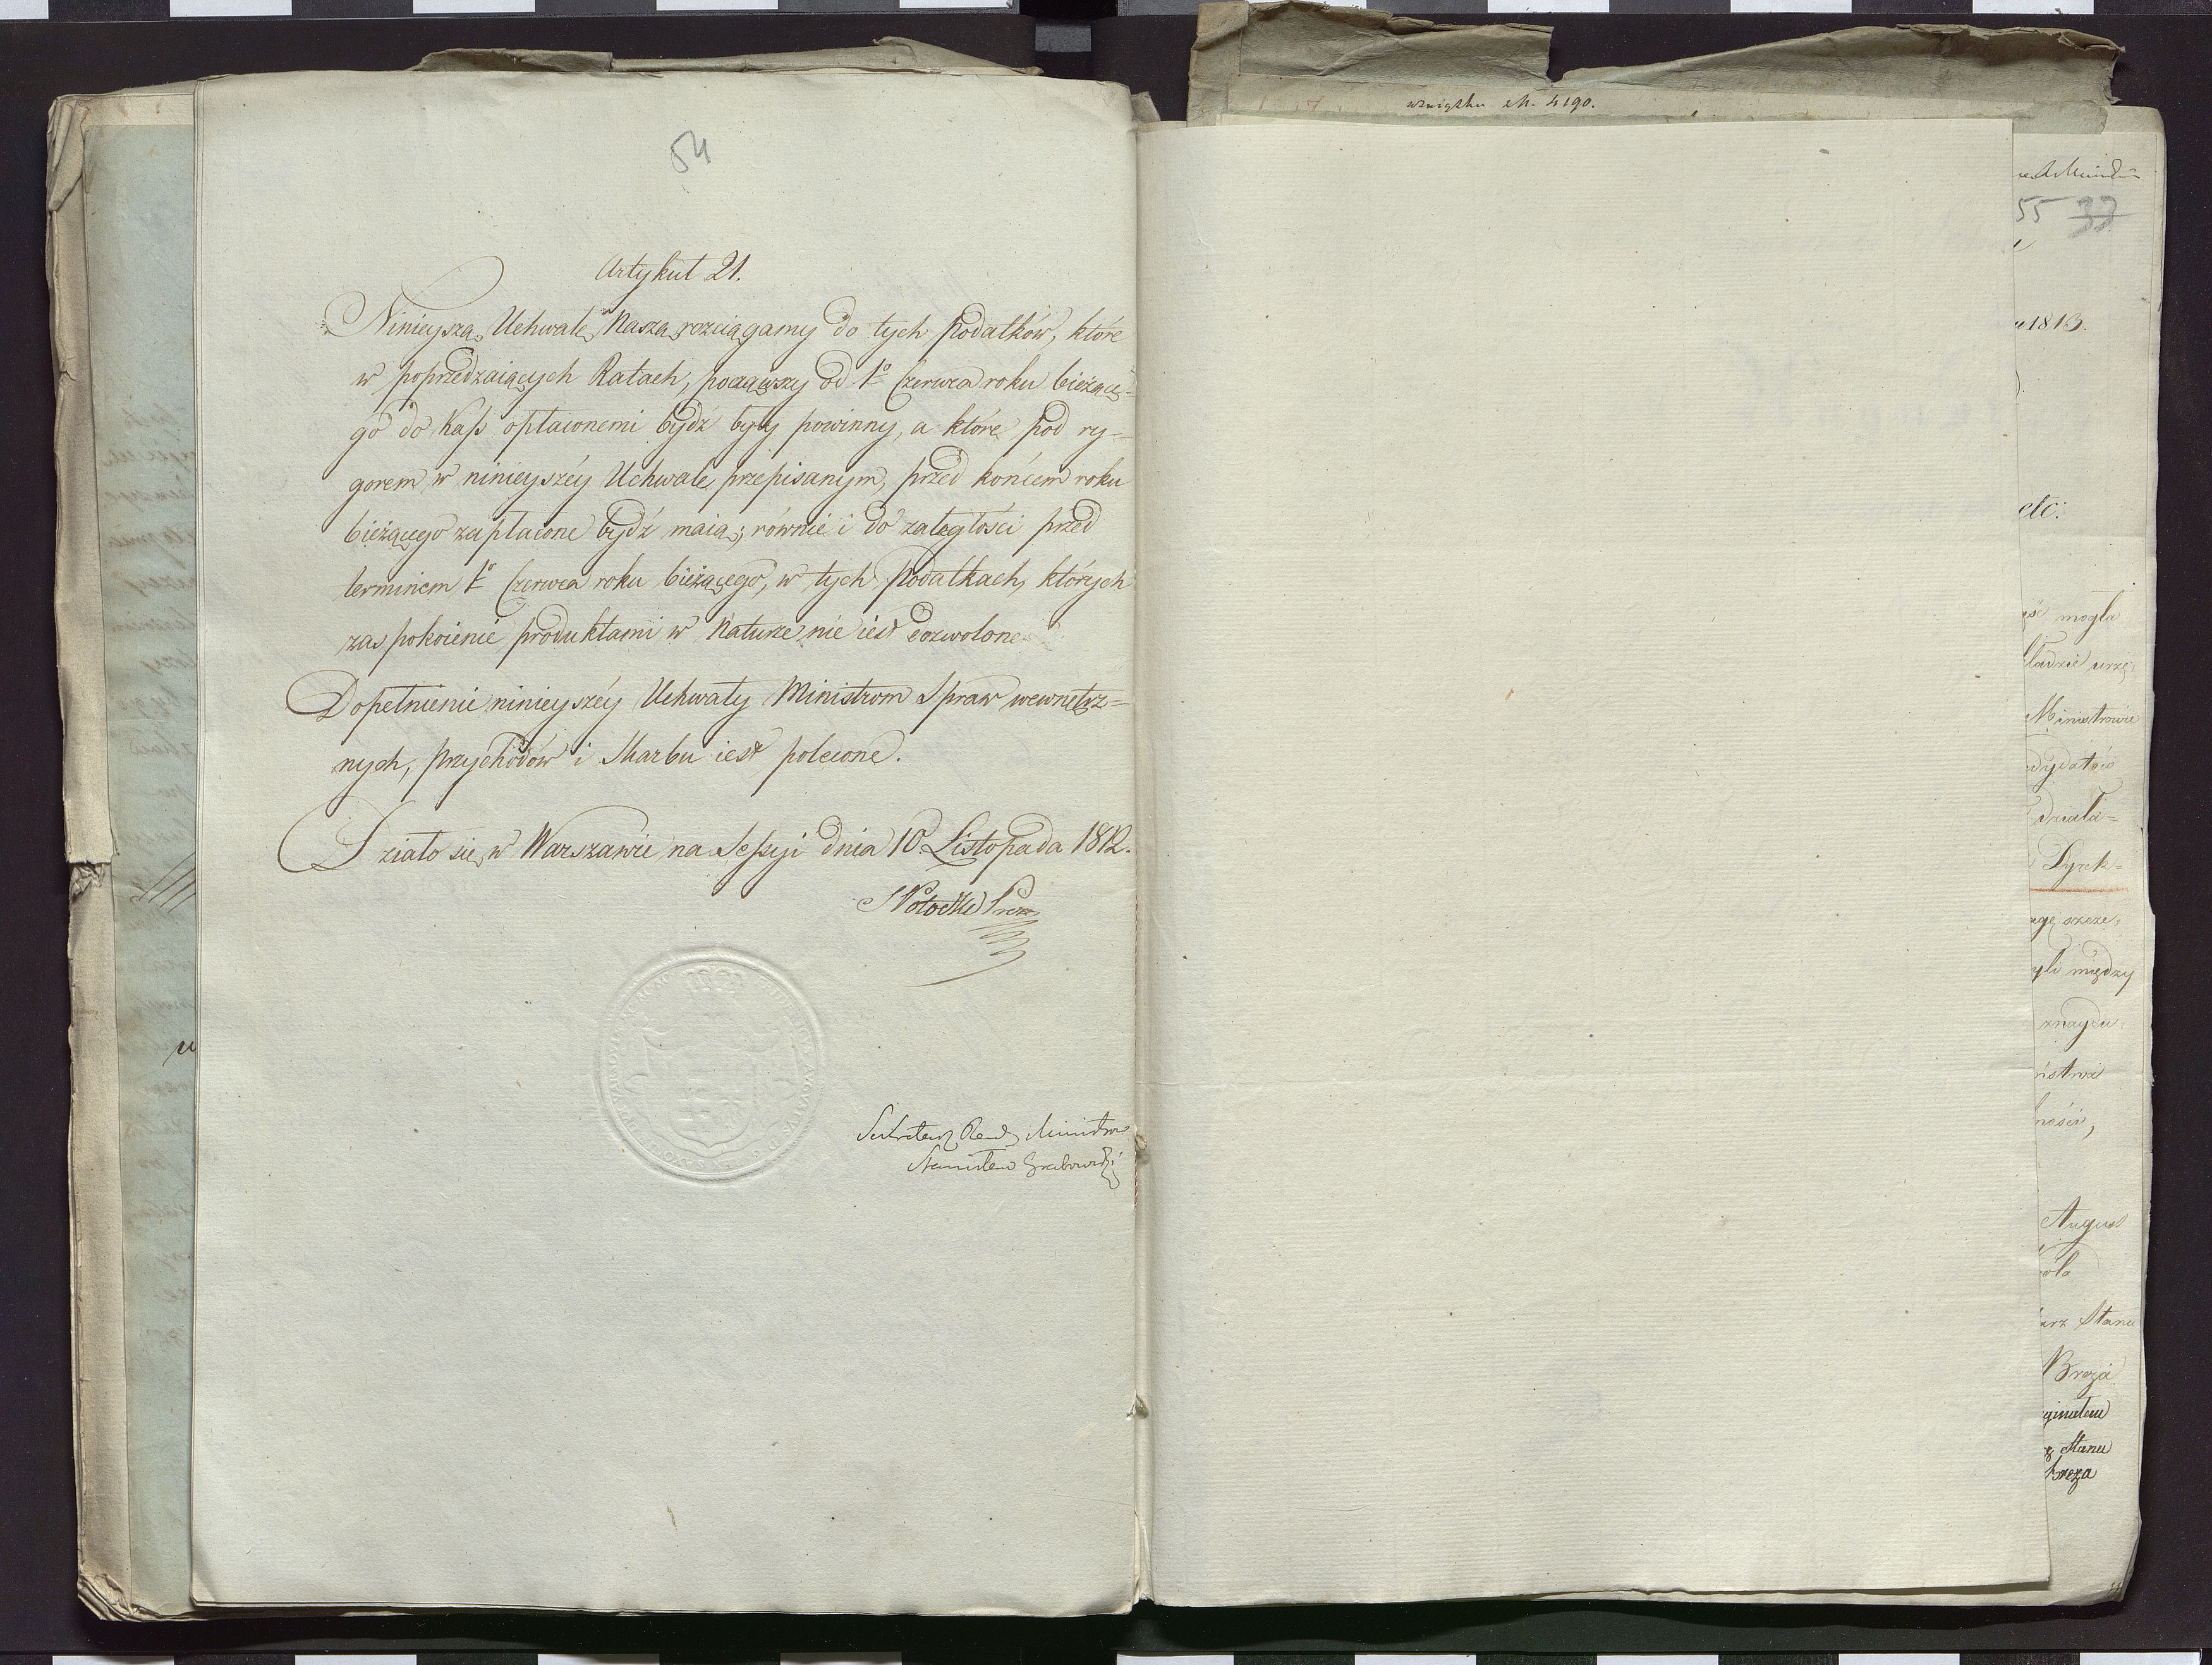 54
Artykuł 21.
Ninieyszą Uchwałę Naszą rozciągamy do tych Podatków, które
w poprzedzaiących Ratach, począwszy od 1º Czerwca roku bieżące-
go do Kass opłaconemi bydź były powinny, a które pod ry-
gorem w ninieyszéy Uchwale przepisanym, przed końcem roku
bieżącego zapłacone bydź maią; równie i do zaległości przed
terminem 1º Czerwca roku bieżącego, w tych Podatkach, których
zaspokoienie produktami w Naturze nie iest dozwolone
Dopełnienie ninieyszéy Uchwały Ministrom Spraw wewnętrz=
nych, Przychodów i Skarbu iest polecone.
Działo się w Warszawie na Sessyi dnia 10 Listopada 1812.
S Potocki Prez
Sekretarz Rady Ministrów
Stanisław Grabowski
w związku ch. 4190.
55 37
1813.
etc:
mogła
Ministrowie
działa=
Dyrek=
między
znaydu
August
Stanu
Breza
Stanu
Breza